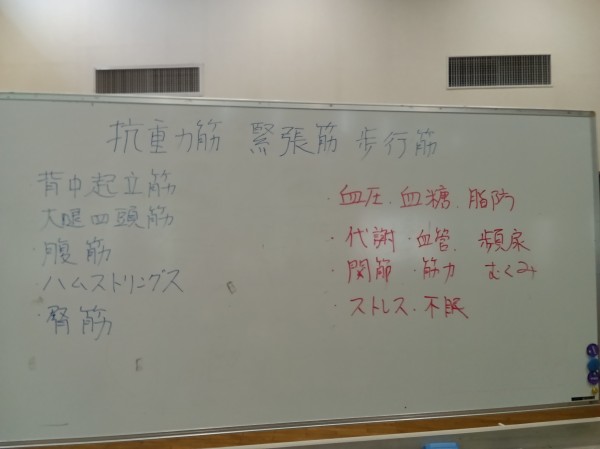 抗重力筋 緊張筋 歩行筋
背中起立筋
大腿四頭筋
・腹筋
・ハムストリングス
・臀筋
・血圧・血糖・脂肪
・代謝・血管・頻尿
・関節・筋力 むくみ
・ストレス・不眠